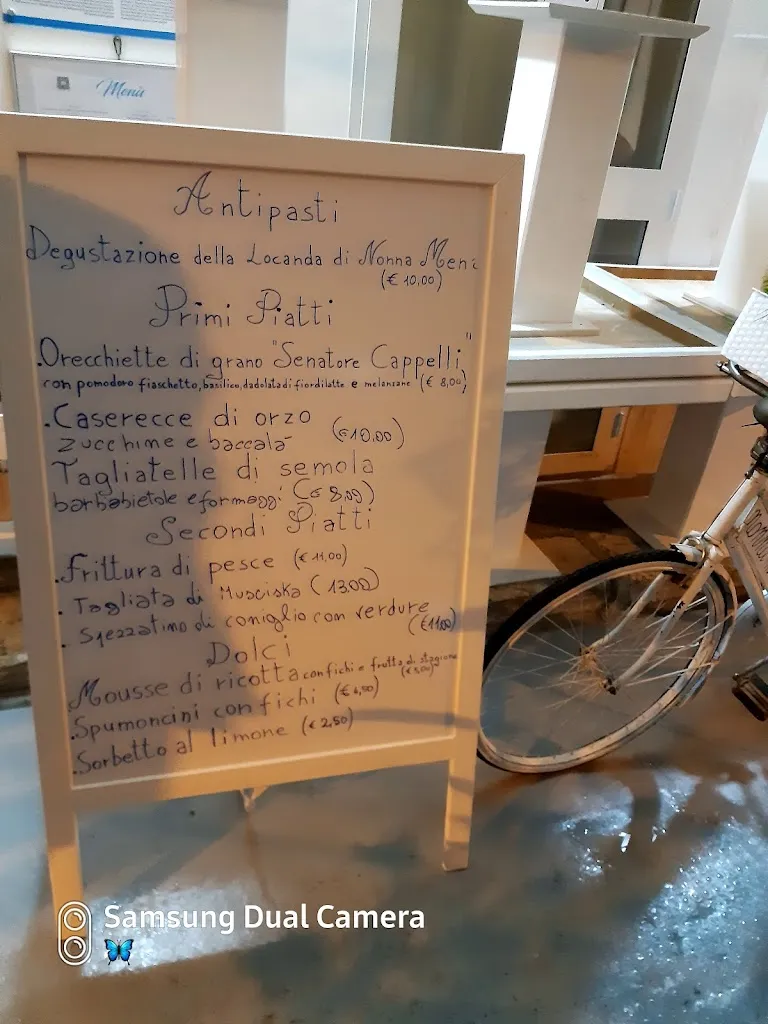 Menù
Antipasti
Degustazione della Locanda di Nonna Menè
(€ 10,00)
Primi Piatti
.Orecchiette di grano "Senatore Cappelli"
con pomodoro fiaschetto, basilico, dadolata di fiordilatte e melanzane (€ 8,00)
.Caserecce di orzo
zucchine e baccalà (€10,00)
Tagliatelle di semola
barbabietole e formaggi (€ 8,00)
Secondi Piatti
.Frittura di pesce (€ 11,00)
. Tagliata di Musciska (13,00)
. Spezzatino di coniglio con verdure
(€11,00)
Dolci
Mousse di ricotta con fichi e frutta di stagione
(€5,00)
.Spumoncini con fichi (€ 4,50)
.Sorbetto al limone (€ 2,50)
Samsung Dual Camera